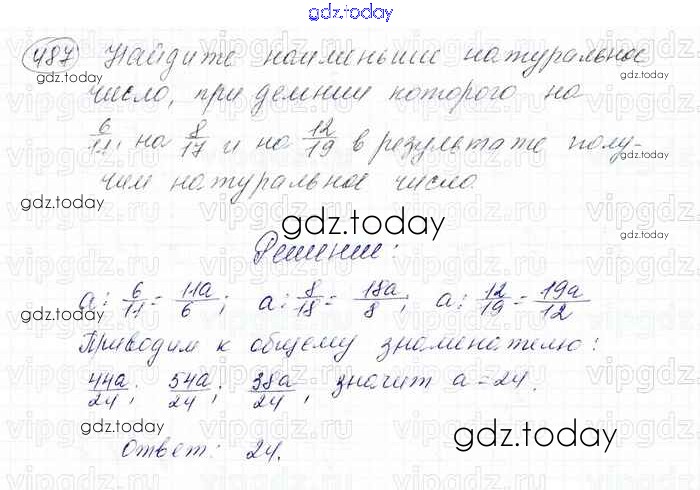 gdz.today
487 Найдите наименьшее натуральное
gdz.today
число, при делении которого на
6/11, на 8/17 и на 12/19 в результате полу-
gdz.today
чим натуральное число.
gdz.today
gdz.today
Решение:
gdz.today
a : 6/11 = 11a/6; a : 8/18 = 18a/8; a : 12/19 = 19a/12
Приводим к общему знаменателю:
gdz.today
44a/24; 54a/24; 38a/24, значит a = 24.
gdz.today
gdz.today
Ответ: 24.